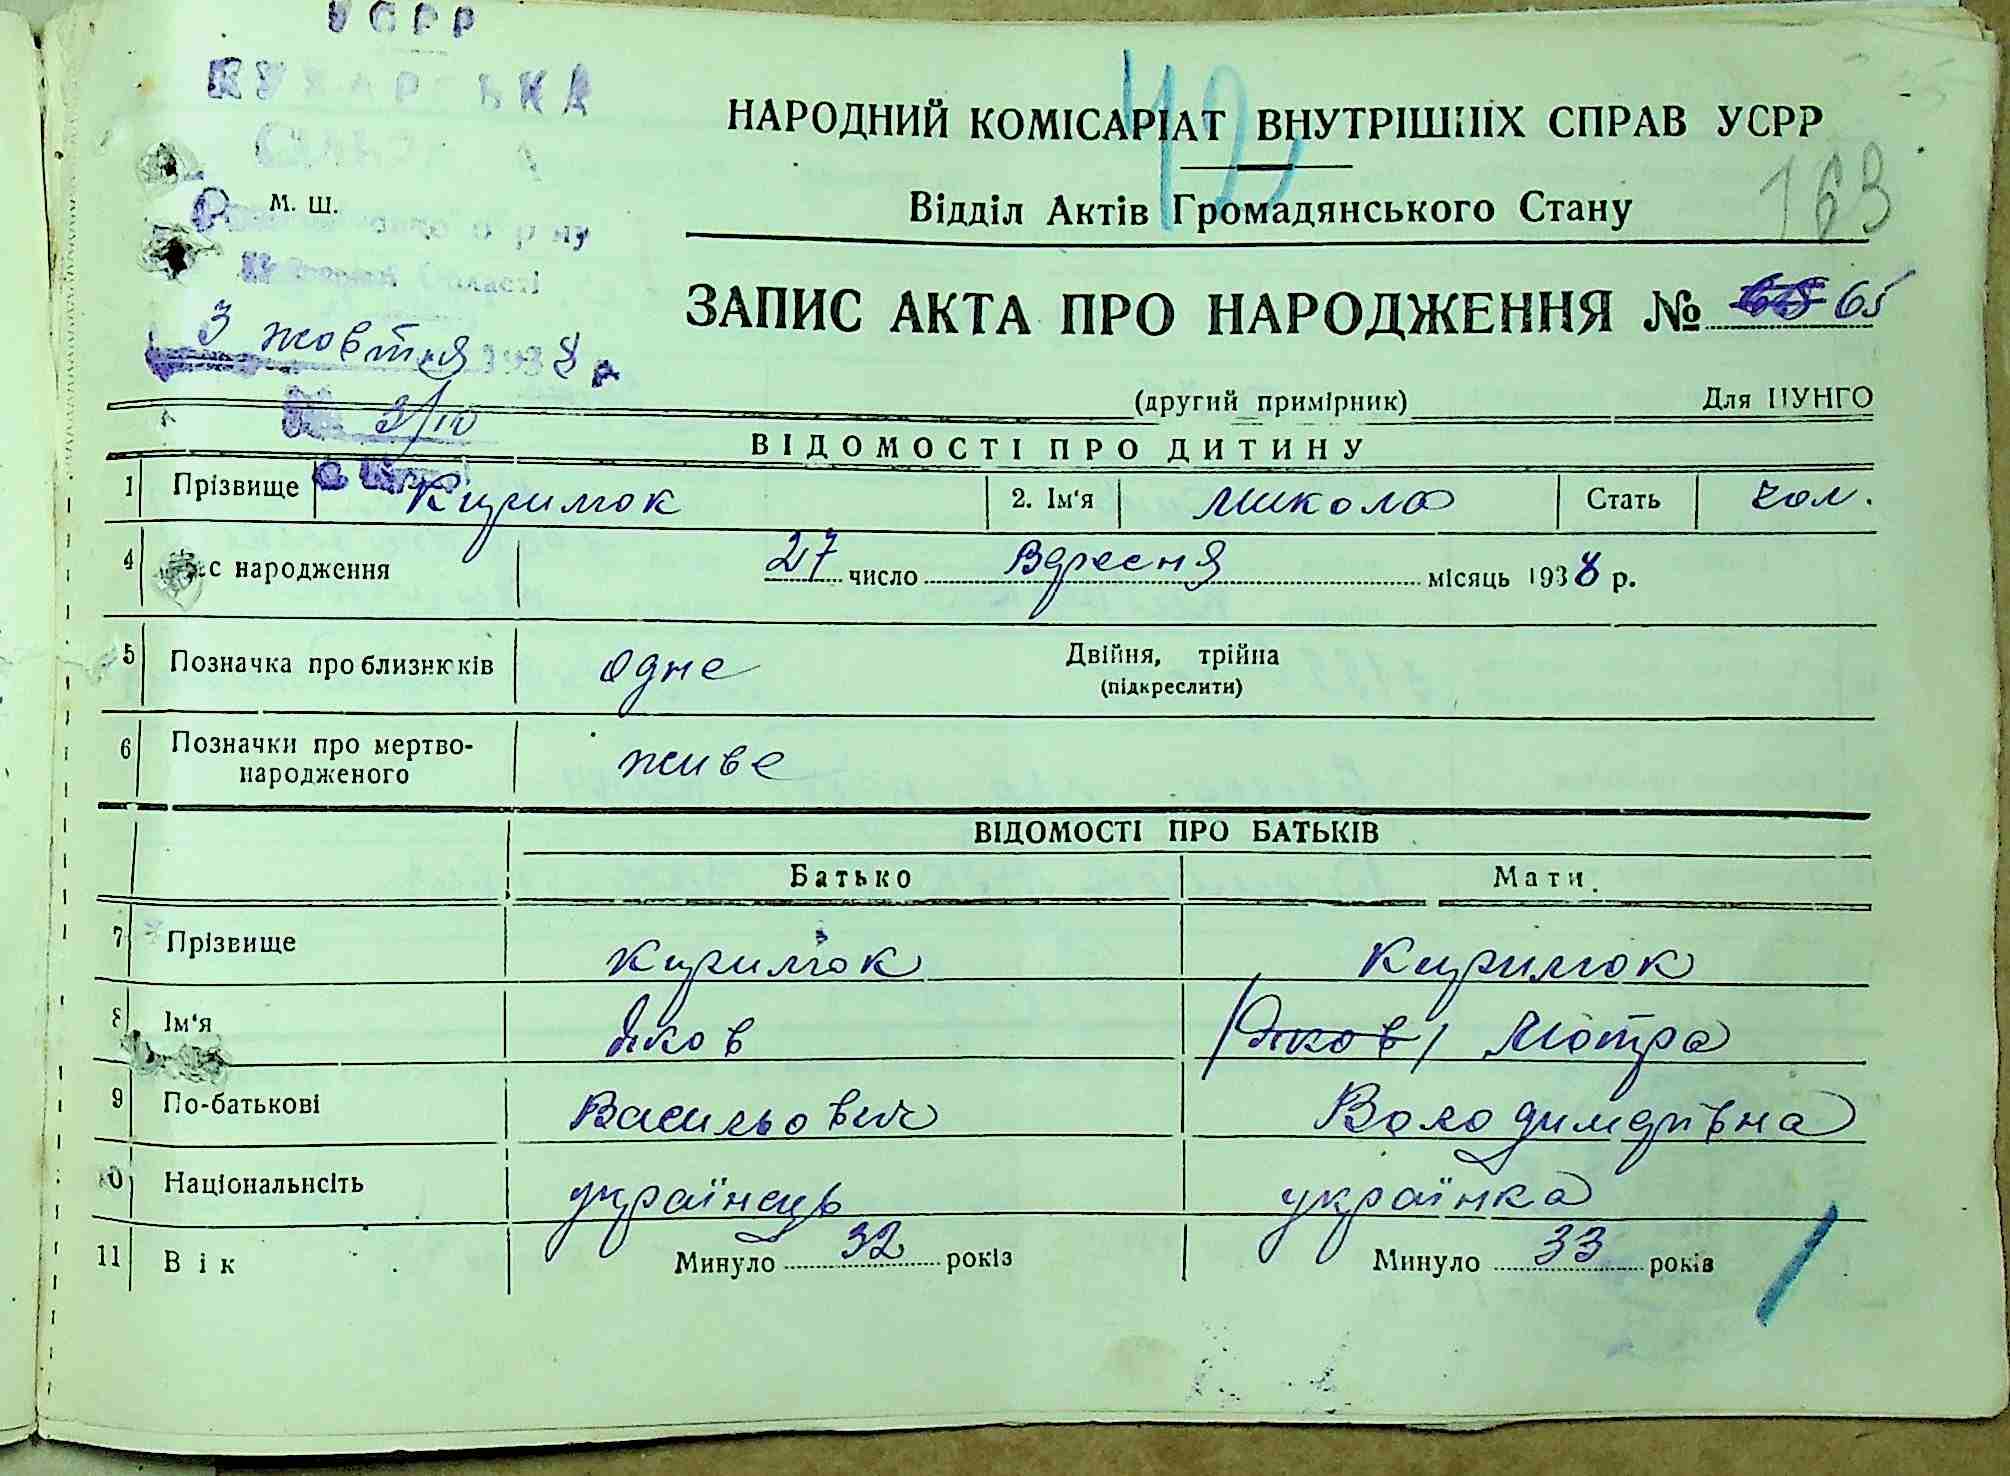 УСРР
КУХАРСЬКА
М. Ш.
області
3 жовтня 1938 р
3/10
42
НАРОДНИЙ КОМІСАРІАТ ВНУТРІШНІХ СПРАВ УСРР
Відділ Актів Громадянського Стану
163
ЗАПИС АКТА ПРО НАРОДЖЕННЯ № 65
(другий примірник) Для ЦУНГО
ВІДОМОСТІ ПРО ДИТИНУ
1 Прізвище Киримок 2. Ім'я Микола Стать чол.
4 с народження 27 число Вересня місяць 1938 р.
5 Позначка про близнюків одне Двійня, трійпа
(підкреслити)
6 Позначки про мертво-
народженого живе
ВІДОМОСТІ ПРО БАТЬКІВ
Батько Мати
7 Прізвище Киримок Киримок
8 Ім'я Яков (Яков) Мотра
9 По-батькові Васильович Володимерівна
10 Національнсіть українець українка
11 Вік Минуло 32 років Минуло 33 років